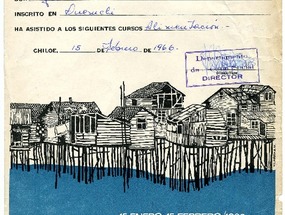 INSCRITO EN Quemchi
HA ASISTIDO A LOS SIGUIENTES CURSOS Alimentación.-
CHILOE, 15 de Febrero de 1966.
Departamento
DIRECTOR
15 ENERO 15 FEBRERO/1966